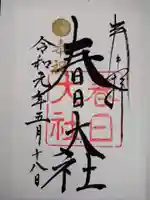 奉拝
春日大社
春日大社
令和元年五月十八日